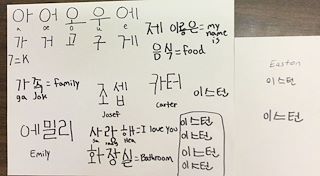 아 어 오 우 에
a oe o u e
가 거 고 구 게
ㄱ=K
제 이름은=my name is
음식=food
가족=family
ga Jok
조셉
Josef
카터
Carter
에밀리
Emily
사랑해=I love you
sa rang hea
화장실=Bathroom
이스턴
이스턴
이스턴
이스턴
이스턴
Easton
이스턴
이스턴